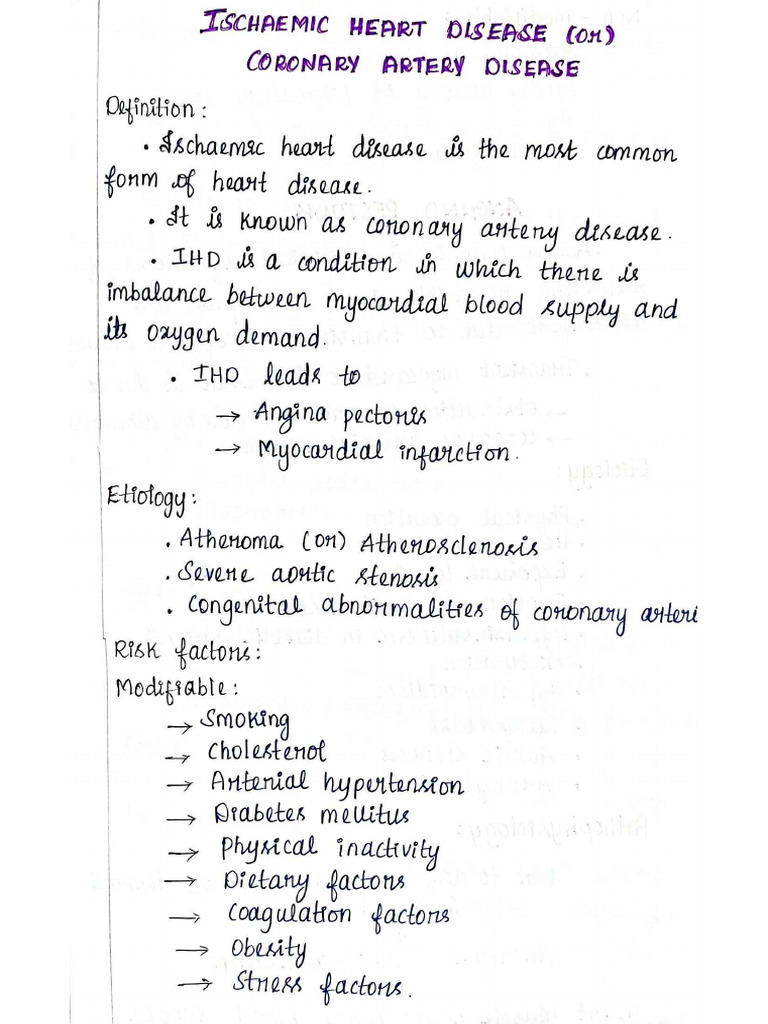 ISCHAEMIC HEART DISEASE (OR)
CORONARY ARTERY DISEASE
Definition:
• Ischaemic heart disease is the most common
form of heart disease.
• It is known as coronary artery disease.
• IHD is a condition in which there is
imbalance between myocardial blood supply and
its oxygen demand.
• IHD leads to
→ Angina pectoris
→ Myocardial infarction.
Etiology:
• Atheroma (or) Atherosclerosis
• Severe aortic stenosis
• Congenital abnormalities of coronary arteri
Risk factors:
Modifiable:
→ Smoking
→ Cholesterol
→ Arterial hypertension
→ Diabetes mellitus
→ Physical inactivity
→ Dietary factors
→ Coagulation factors
→ Obesity
→ Stress factors.